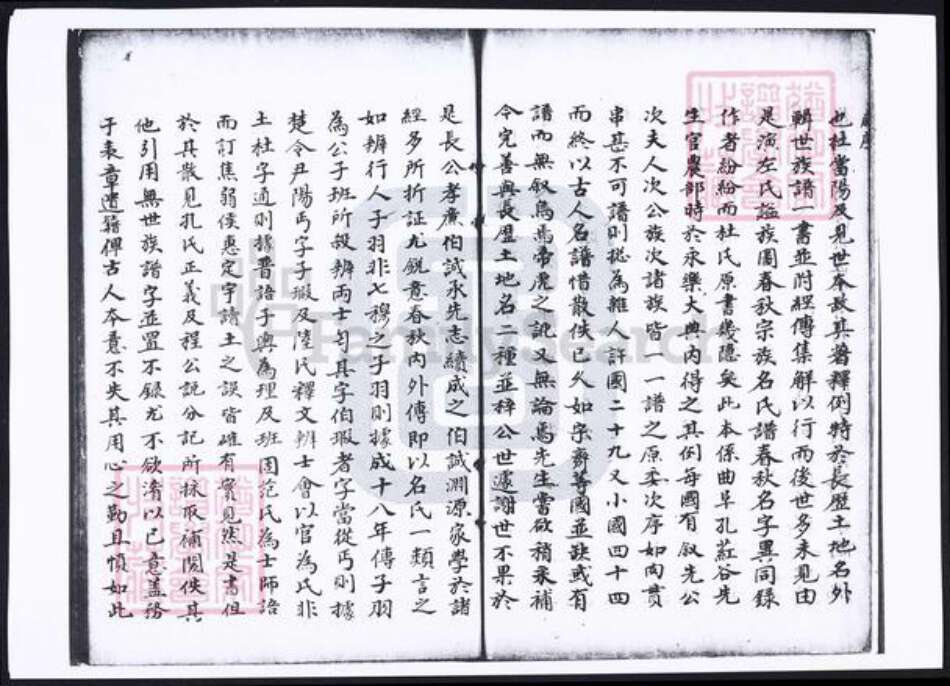 也杜當陽及見世本故其箸釋例特於長歷土地名外
輯世族譜一書並附經傳集解以行而後世多未見由
是演左氏謚族圖春秋宗族名氏譜春秋名字異同錄
作者紛紛而杜氏原書幾隱矣此本係曲阜孔葒谷先
生官農部時於永樂大典內得之其例每國有叙先公
次夫人次公族次諸族皆一一譜之原委次序如肉貫
串甚不可譜則搃為雜人計國二十九又小國四十四
而終以古人名譜惜散佚已久如宋齊等國並缺或有
譜而無叙烏焉帝虎之訛又無論焉先生嘗欲稍采補
令完善與長歷土地名二種並梓公世遽謝世不果於
是長公孝廉伯誠承先志續成之伯誠淵源家學於諸
經多所折証尤銳意春秋內外傳即以名氏一類言之
如辨行人子羽非七穆之子羽則據成十八年傳子羽
為公子班所殺辨兩士匄其字伯瑕者字當從丐則據
楚令尹陽丐字子瑕及陸氏釋文辨士會以官為氏非
土杜字通則據晋語子輿為理及班固范氏為士師語
而訂焦弱侯惠定宇讀土之誤皆確有實見然是書但
於其散見孔氏正義及程公說分記所採取補闕佚其
他引用無世族譜字並置不錄尤不欲淆以己意蓋務
于表章遺籍俾古人本意不失其用心之勤且慎如此
FamilySearch